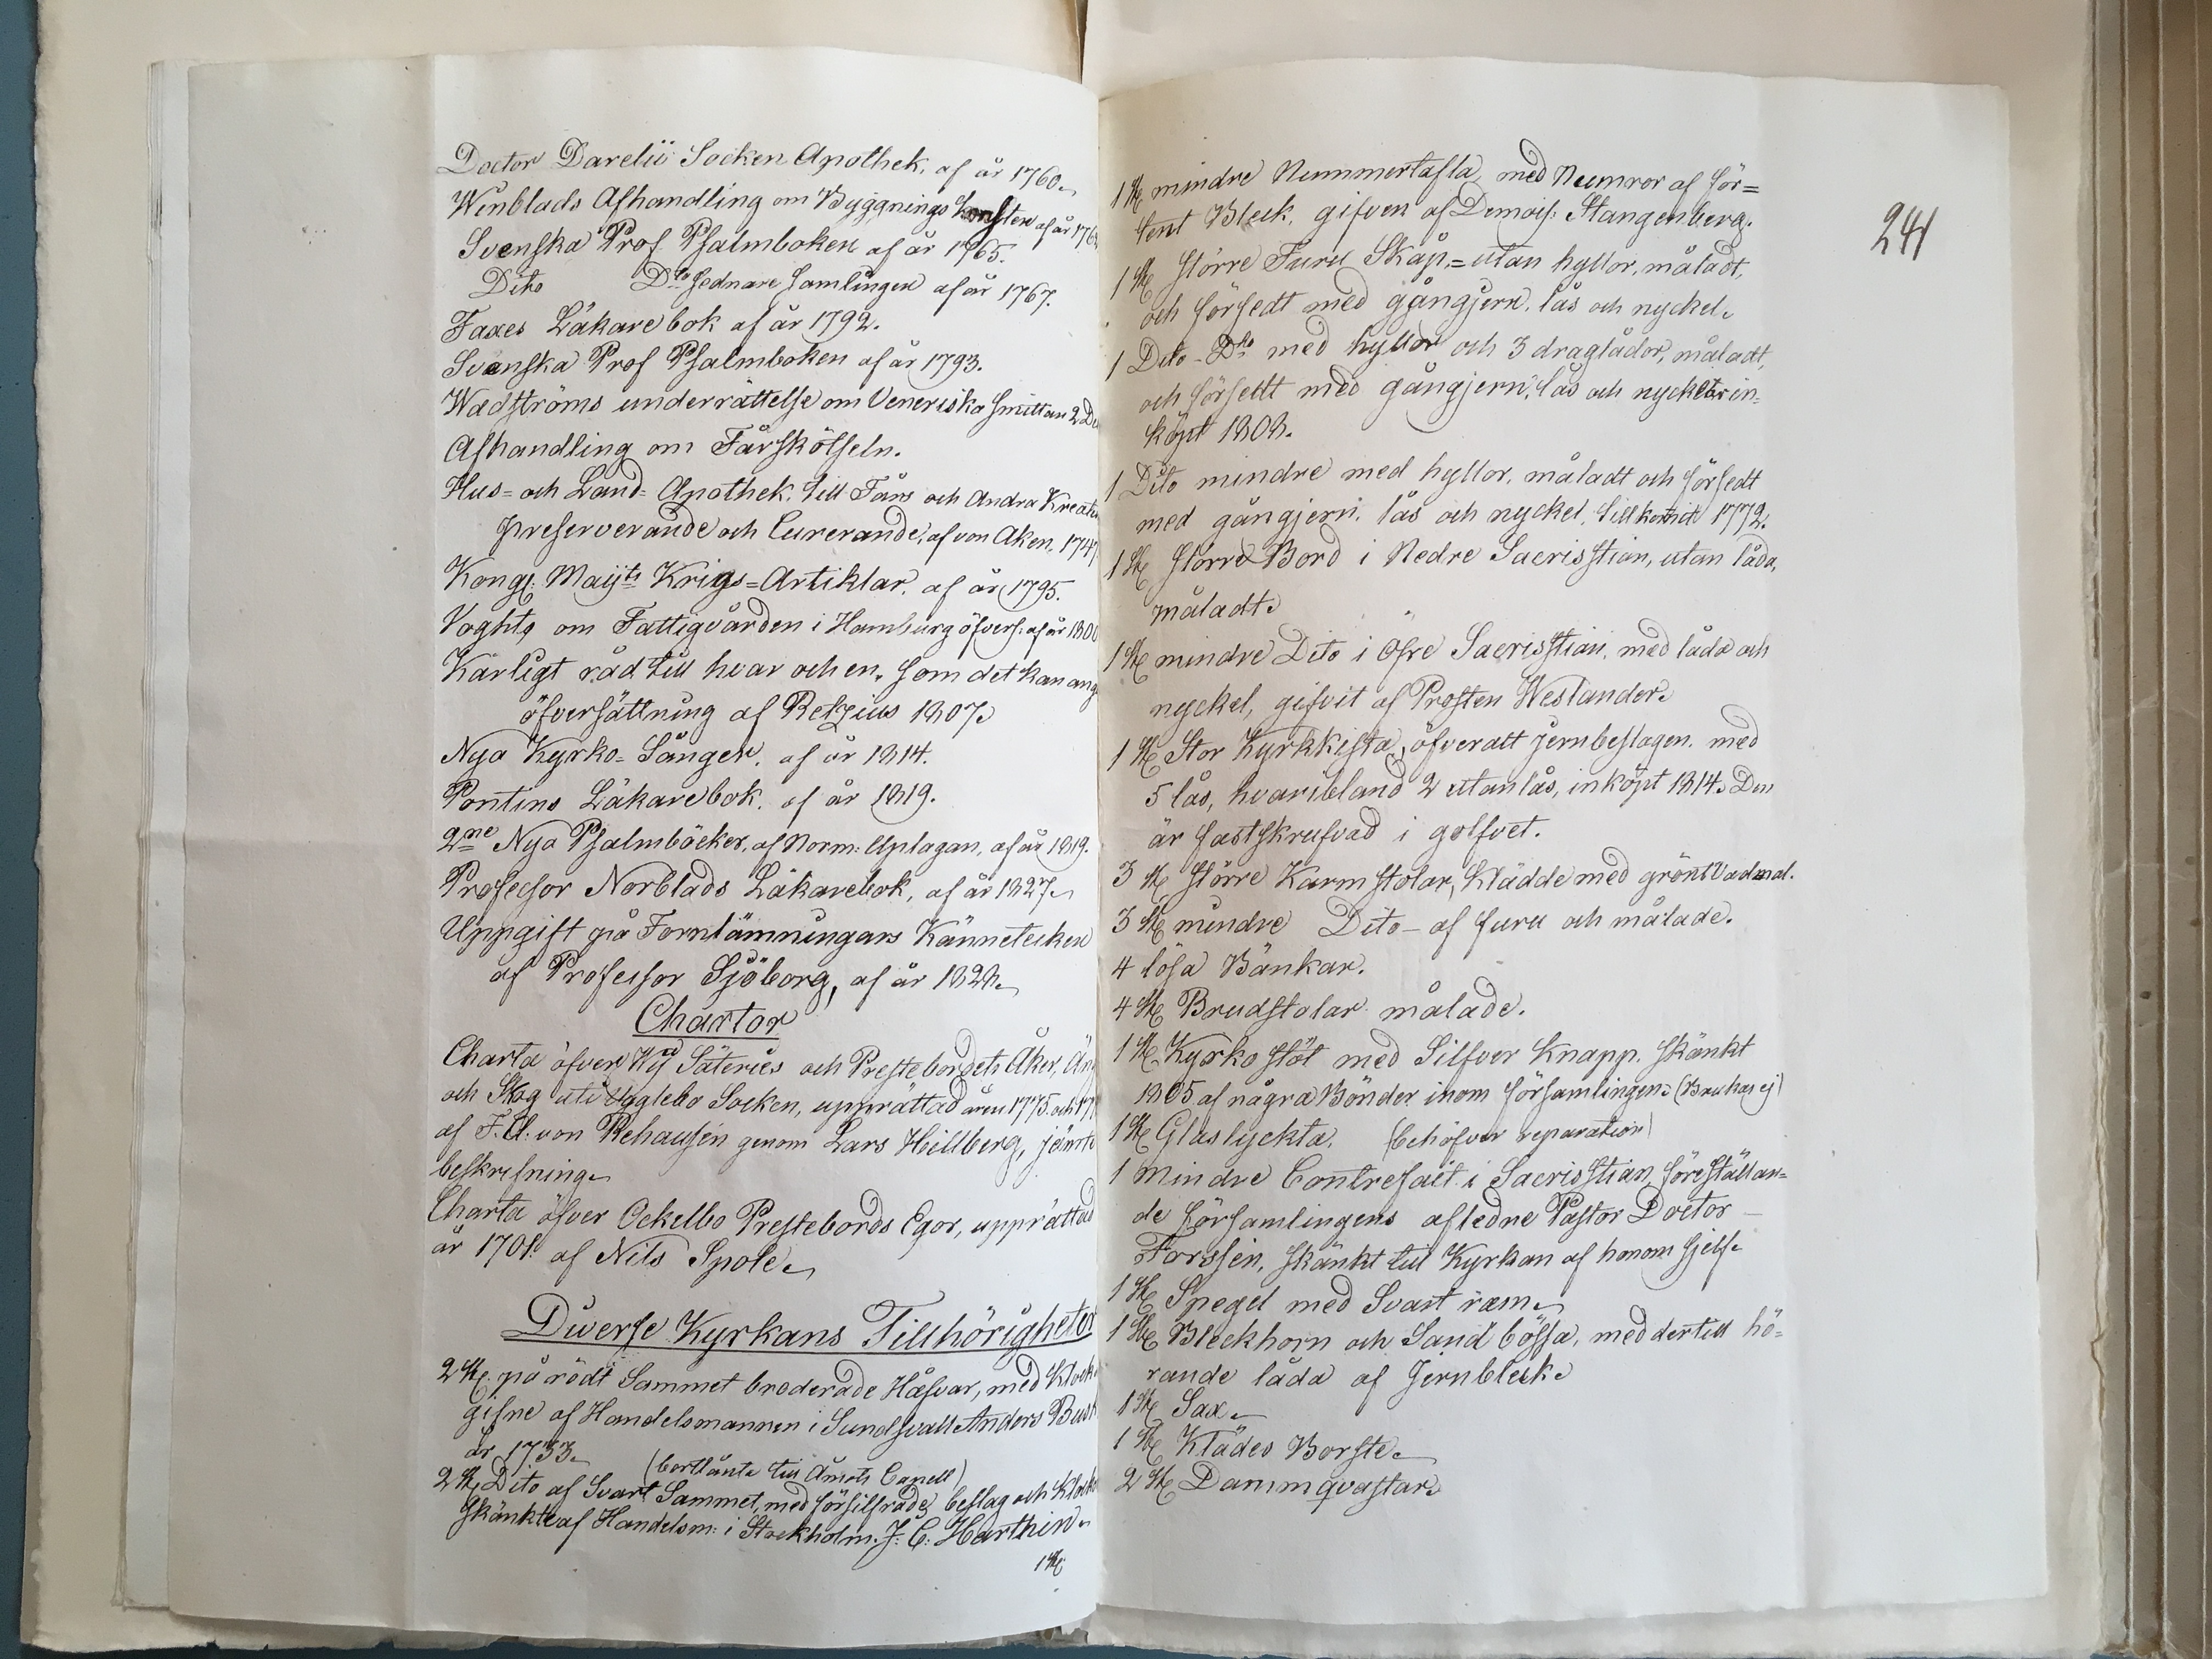 Doctor Darelii Socken Apothek, af år 1760.
Winblads Afhandling om Byggnings Konsten af år 176
Svenska Prof Psalmboken af år 1765.
Dito Dto sednare samlingen af år 1767.
Faxes Läkarebok af år 1792.
Svenska Prof Psalmboken af år 1793.
Wadströms underrättelse om Veneriska smittan 2
Afhandling om Fårskötseln.
Hus- och Land-Apothek, till Fårs och Andra
preserverande och Curerande, af von Aken, 1747
Kongl: Maijts Krigs-Artiklar, af år 1795.
Voghts om Fattigvården i Hamburg öfvers: af år 180
Kärligt råd till hvar och en, som det kan ang
öfversättning af Retzius 1807.
Nya Kyrko-Sången, af år 1814.
Pontins Läkarebok, af år 1819.
2ne Nya Psalmböcker, af Norm: Uplagan, af år 1819.
Professor Norblads Läkarebok, af år 1827.
Uppgift på Fornlämningars Kännetecken
af Professor Sjöborg, af år 1828.
Chartor
Charta öfver Wij Säteries och Prestebordets Åker, Äng
och Skog uti Ugglebo Socken, upprättad åren 1775 och 17
af F. U. von Rehausen genom Lars Hillberg, jämte
beskrifning.
Charta öfver Ockelbo Prestebords Egor, upprättad
år 1701. af Nils Spole.
Diverse Kyrkans Tillhörigheter
2 St. på rödt Sammet broderade Håfvar, med
gifne af Handelsmannen i Sundsvall Anders
år 1733.
(bortlånte till Åmots Capell)
2 St. Dito af Svart Sammet, med försilfrade beslag och
skänkte af Handelsm: i Stockholm. J: C: Harthin.
1 St.
241
1 St. mindre Nummertafla, med Numror af för-
tent Bleck, gifven af Demois: Stangenberg.
1 St. större Furu Skåp,= utan hyllor, måladt,
och försedt med gångjern, lås och nyckel.
1 Dito-Dto med hyllor och 3 draglådor, måladt,
och försedt med gångjern, lås och nycklar in-
köpt 1808.
1 Dito mindre med hyllor, måladt och försedt
med gångjern, lås och nyckel, tillkommit 1772.
1 St. större Bord i Nedre Sacristian, utan låda,
måladt.
1 St. mindre Dito i Öfre Sacristian, med låda och
nyckel, gifvit af Prosten Westlander.
1 St. Stor Kyrkkista, öfverallt jernbeslagen, med
5 lås, hvaribland 2 utanlås, inköpt 1814. Den
är fastskrufvad i golfvet.
3 St. större Karmstolar, klädde med grönt Vadmal.
3 St. mindre Dito - af furu och målade.
4 lösa Bänkar.
4 St. Brudstolar målade.
1 St. Kyrkostöt med Silfver Knapp, skänkt
1805 af några Bönder inom församlingen. (Brukas ej)
1 St. Glaslyckta. (behöfver reparation)
1 mindre Contrefait i Sacristian, föreställan-
de församlingens afledne Pastor Doctor
Forssén, skänkt till Kyrkan af honom sjelf.
1 St. Spegel med Svart ram.
1 St. Bleckhorn och Sandbössa, med dertill hö-
rande låda af Jernbleck.
1 St. Sax.
1 St. Klädes Borste.
2 St. Dammqvastar.